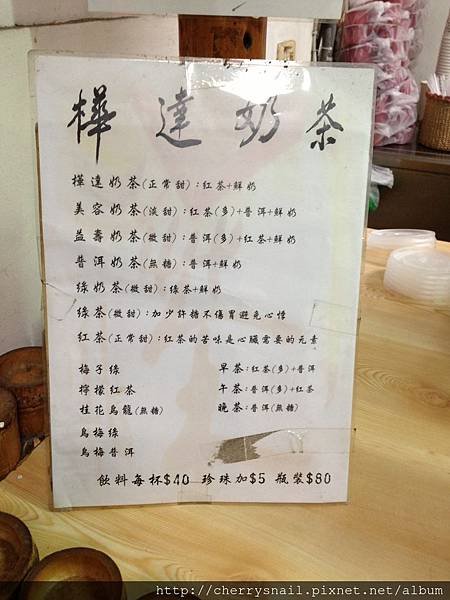 樺達奶茶
樺達奶茶(正常甜):紅茶+鮮奶
美容奶茶(淡甜):紅茶(多)+普洱+鮮奶
益壽奶茶(微甜):普洱(多)+紅茶+鮮奶
普洱奶茶(無糖):普洱+鮮奶
綠奶茶(微甜):綠茶+鮮奶
綠茶(微甜):加少許糖不傷胃避免心悸
紅茶(正常甜):紅茶的苦味是心臟需要的元素
梅子綠
檸檬紅茶
桂花烏龍(無糖)
烏梅綠
烏梅普洱
早茶:紅茶(多)+普洱
午茶:普洱(多)+紅茶
晚茶:普洱(無糖)
飲料每杯$40 珍珠加$5 瓶裝$80
http://cherrysnail.pixnet.net/album